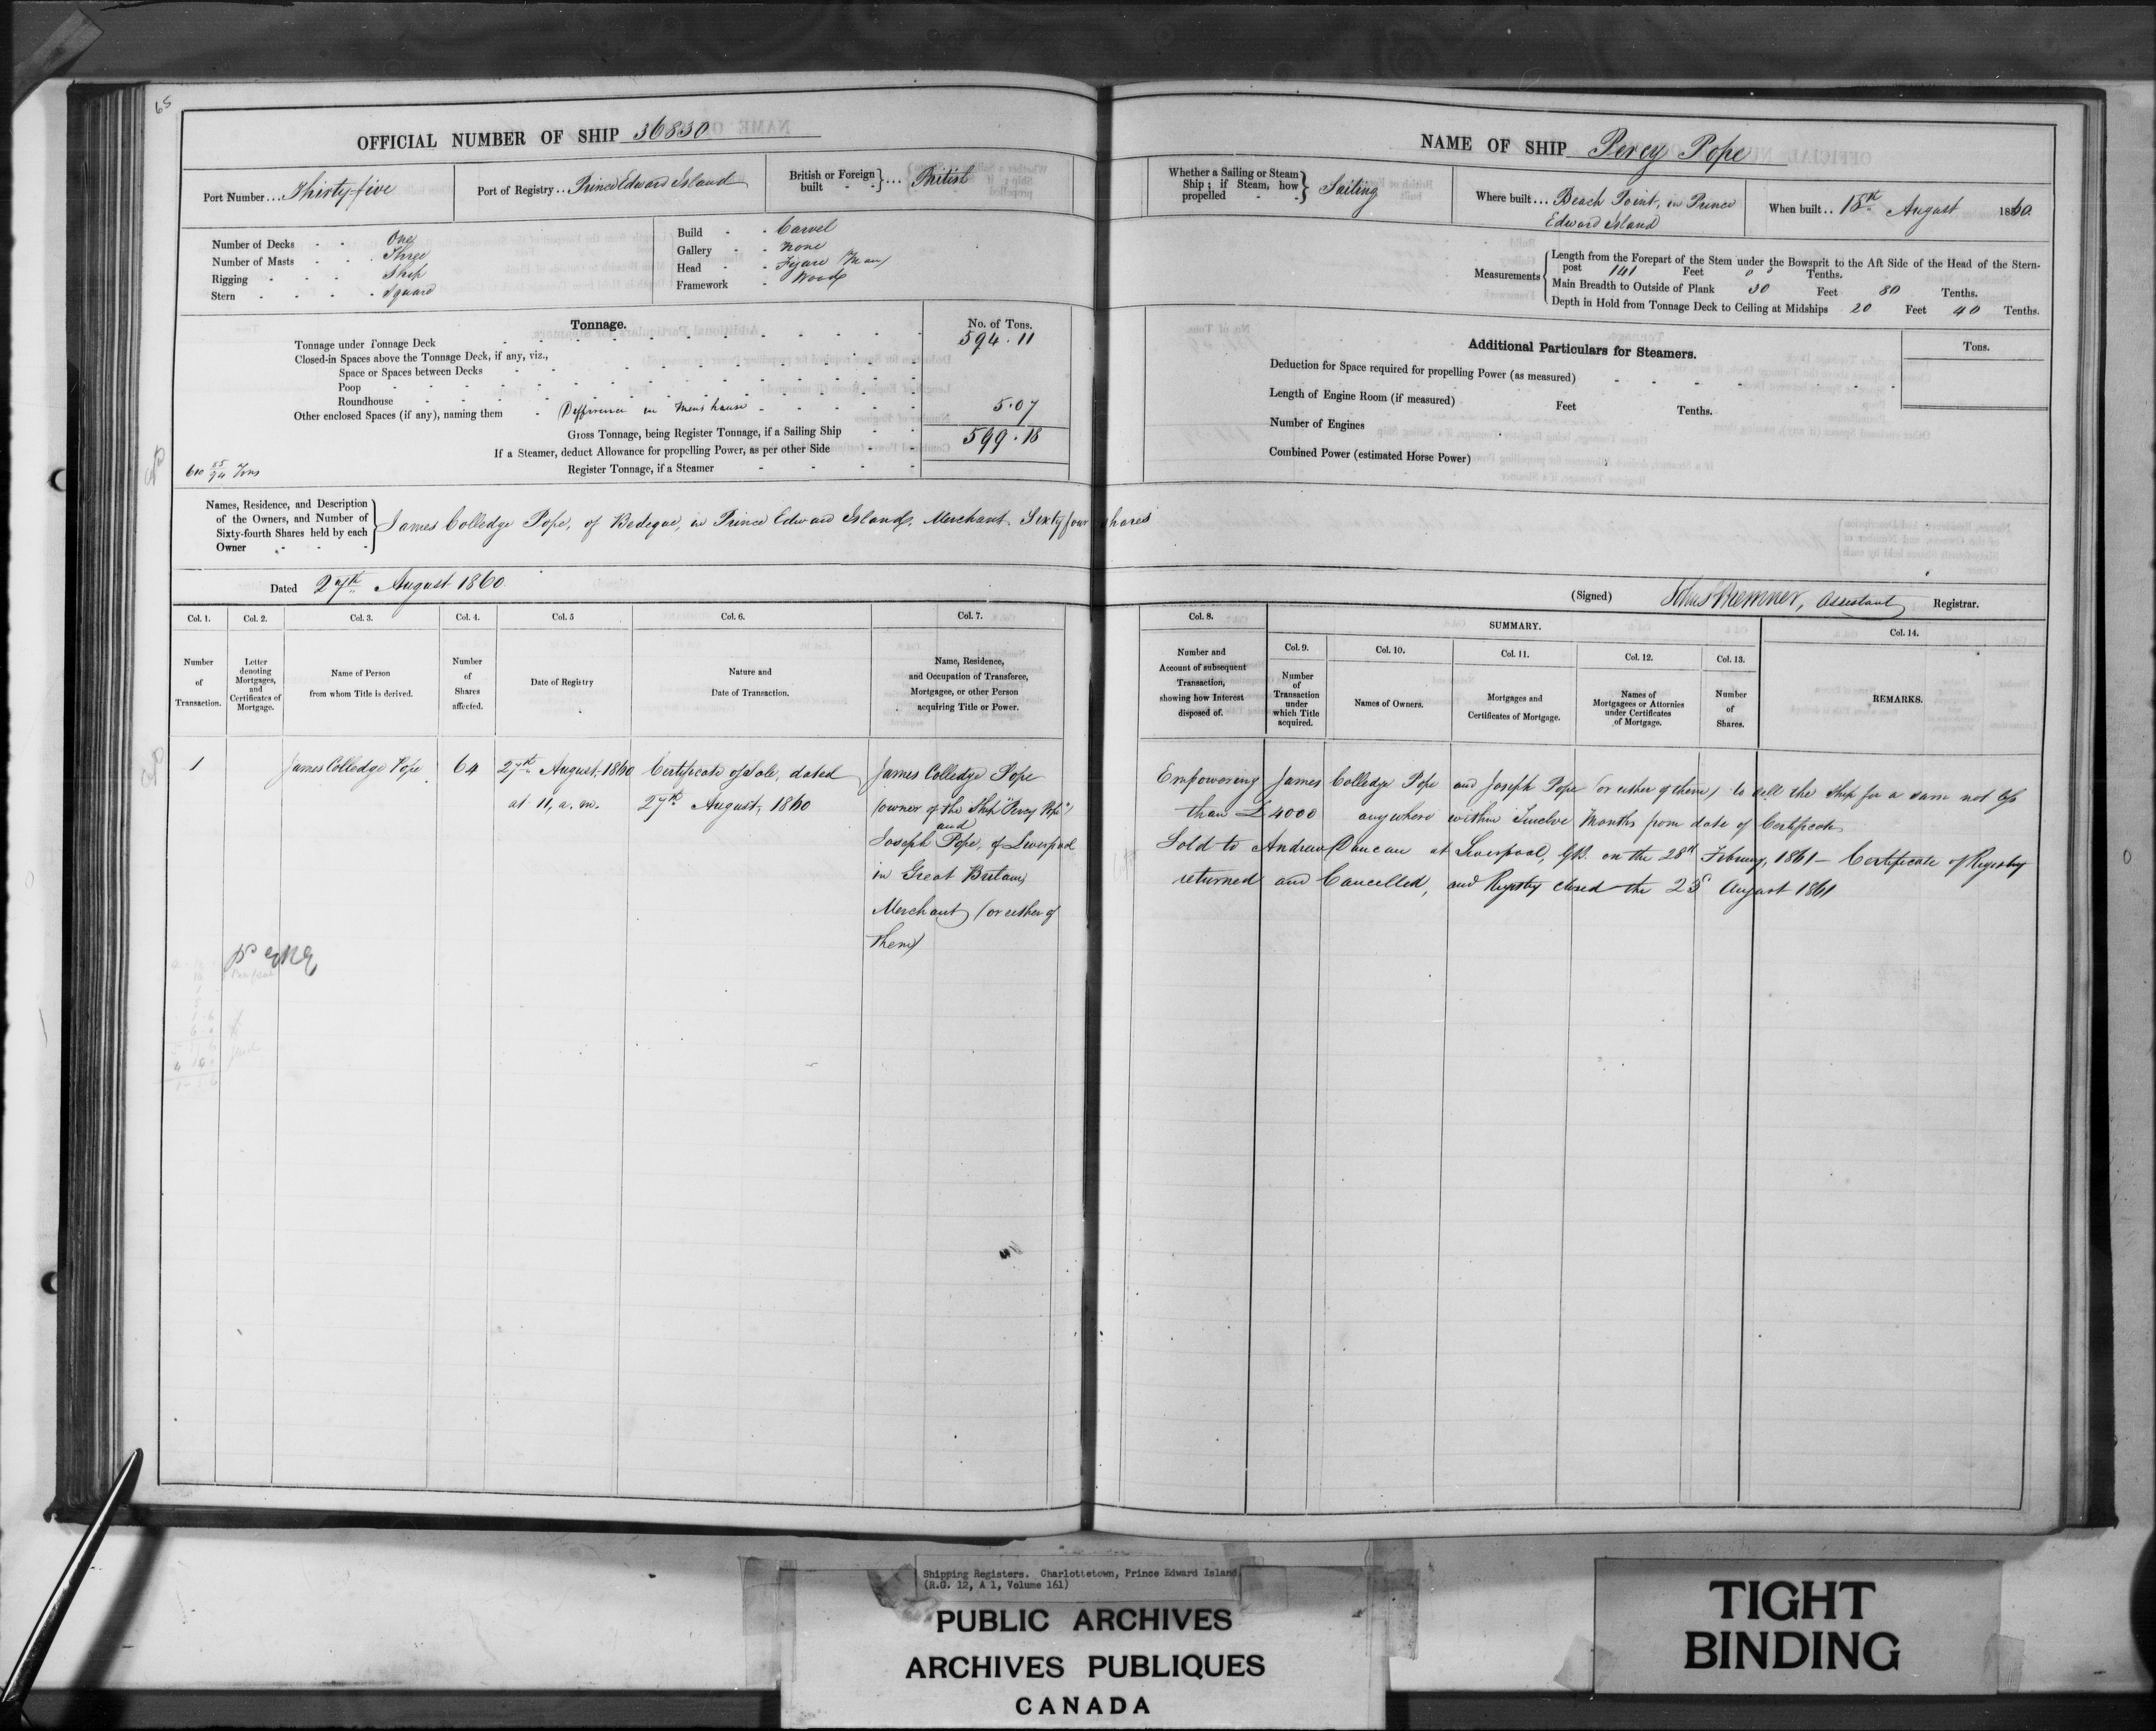 65
OFFICIAL NUMBER OF SHIP 36830
Port Number... Thirty-five
Port of Registry... Prince Edward Island
British or Foreign built - - } ... British
Number of Decks - - One
Number of Masts - - Three
Rigging - - Ship
Stern - - Square
Build - - Carvel
Gallery - - None
Head - - Figure Man
Framework - Wood
Tonnage.
No. of Tons.
Tonnage under Tonnage Deck 594.11
Closed-in Spaces above the Tonnage Deck, if any, viz.,
Space or Spaces between Decks
Poop
Roundhouse
Other enclosed Spaces (if any), naming them - Difference in Mens house 5.07
Gross Tonnage, being Register Tonnage, if a Sailing Ship 599.18
If a Steamer, deduct Allowance for propelling Power, as per other Side
Register Tonnage, if a Steamer
610 85/94 Tons
Names, Residence, and Description of the Owners, and Number of Sixty-fourth Shares held by each Owner
James Colledge Pope, of Bedeque, in Prince Edward Island, Merchant. Sixty four shares
Dated 27th August 1860
NAME OF SHIP Percy Pope
Whether a Sailing or Steam Ship; if Steam, how propelled - - } Sailing
Where built... Beach Point, in Prince
Edward Island
When built.. 18th August 1860
Measurements
Length from the Forepart of the Stem under the Bowsprit to the Aft Side of the Head of the Stern-
post 141 Feet 0 0 Tenths.
Main Breadth to Outside of Plank 30 Feet 80 Tenths.
Depth in Hold from Tonnage Deck to Ceiling at Midships 20 Feet 40 Tenths.
Additional Particulars for Steamers.
Tons.
Deduction for Space required for propelling Power (as measured)
Length of Engine Room (if measured) Feet Tenths.
Number of Engines
Combined Power (estimated Horse Power)
(Signed) Bremner, Assistant Registrar.
Col. 1. Col. 2. Col. 3. Col. 4. Col. 5 Col. 6. Col. 7.
Number of Transaction.
Letter denoting Mortgages, and Certificates of Mortgage.
Name of Person from whom Title is derived.
Number of Shares affected.
Date of Registry
Nature and Date of Transaction.
Name, Residence, and Occupation of Transferee, Mortgagee, or other Person acquiring Title or Power.
Col. 8.
SUMMARY.
Col. 9. Col. 10. Col. 11. Col. 12. Col. 13. Col. 14.
Number and Account of subsequent Transaction, showing how Interest disposed of.
Number of Transaction under which Title acquired.
Names of Owners.
Mortgages and Certificates of Mortgage.
Names of Mortgagees or Attornies under Certificates of Mortgage.
Number of Shares.
REMARKS.
1 James Colledge Pope 64 27th August, 1860 Certificate of Sale, dated James Colledge Pope
at 11, a.m. 27th August, 1860 (owner of the Ship "Percy Pope")
and
Joseph Pope, of Liverpool
in Great Britain
Merchant (or either of
them)
Empowering James Colledge Pope and Joseph Pope (or either of them) to sell the Ship for a sum not less
than £4000 anywhere within Twelve Months from date of Certificate
Sold to Andrew Duncan at Liverpool, GB. on the 28th Febry, 1861 - Certificate of Registry
returned and Cancelled, and Registry closed the 25 August 1861
Shipping Registers. Charlottetown, Prince Edward Island
(R.G. 12, A 1, Volume 161)
PUBLIC ARCHIVES
ARCHIVES PUBLIQUES
CANADA
TIGHT
BINDING